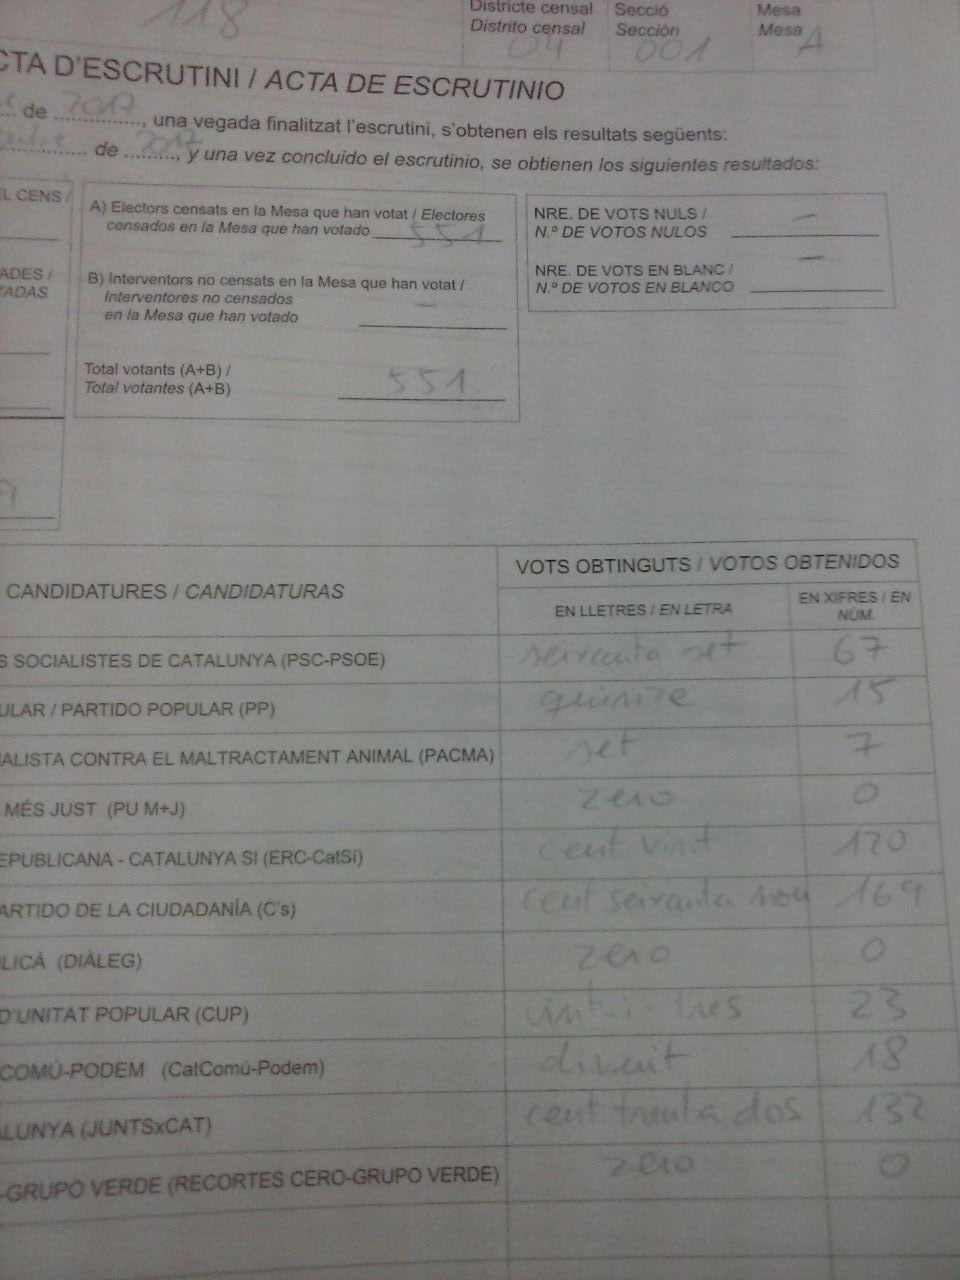 118
Districte censal Secció Mesa
Distrito censal Sección Mesa
04 001 A
CTA D'ESCRUTINI / ACTA DE ESCRUTINIO
de 2017, una vegada finalitzat l'escrutini, s'obtenen els resultats següents:
de 2017, y una vez concluido el escrutinio, se obtienen los siguientes resultados:
EL CENS /
ADES /
TADAS
A) Electors censats en la Mesa que han votat / Electores
censados en la Mesa que han votado 551
B) Interventors no censats en la Mesa que han votat /
Interventores no censados
en la Mesa que han votado —
Total votants (A+B) /
Total votantes (A+B) 551
NRE. DE VOTS NULS /
N.º DE VOTOS NULOS —
NRE. DE VOTS EN BLANC /
N.º DE VOTOS EN BLANCO —
CANDIDATURES / CANDIDATURAS
VOTS OBTINGUTS / VOTOS OBTENIDOS
EN LLETRES / EN LETRA
EN XIFRES / EN
NÚM.
S SOCIALISTES DE CATALUNYA (PSC-PSOE) seixanta set 67
ULAR / PARTIDO POPULAR (PP) quinze 15
ALISTA CONTRA EL MALTRACTAMENT ANIMAL (PACMA) set 7
MÉS JUST (PU M+J) zero 0
EPUBLICANA - CATALUNYA SI (ERC-CatSí) cent vint 120
ARTIDO DE LA CIUDADANÍA (C's) cent seixanta nou 169
LICÀ (DIÀLEG) zero 0
D'UNITAT POPULAR (CUP) vint-i-tres 23
COMÚ-PODEM (CatComú-Podem) divuit 18
ALUNYA (JUNTSxCAT) cent trenta dos 132
-GRUPO VERDE (RECORTES CERO-GRUPO VERDE) zero 0